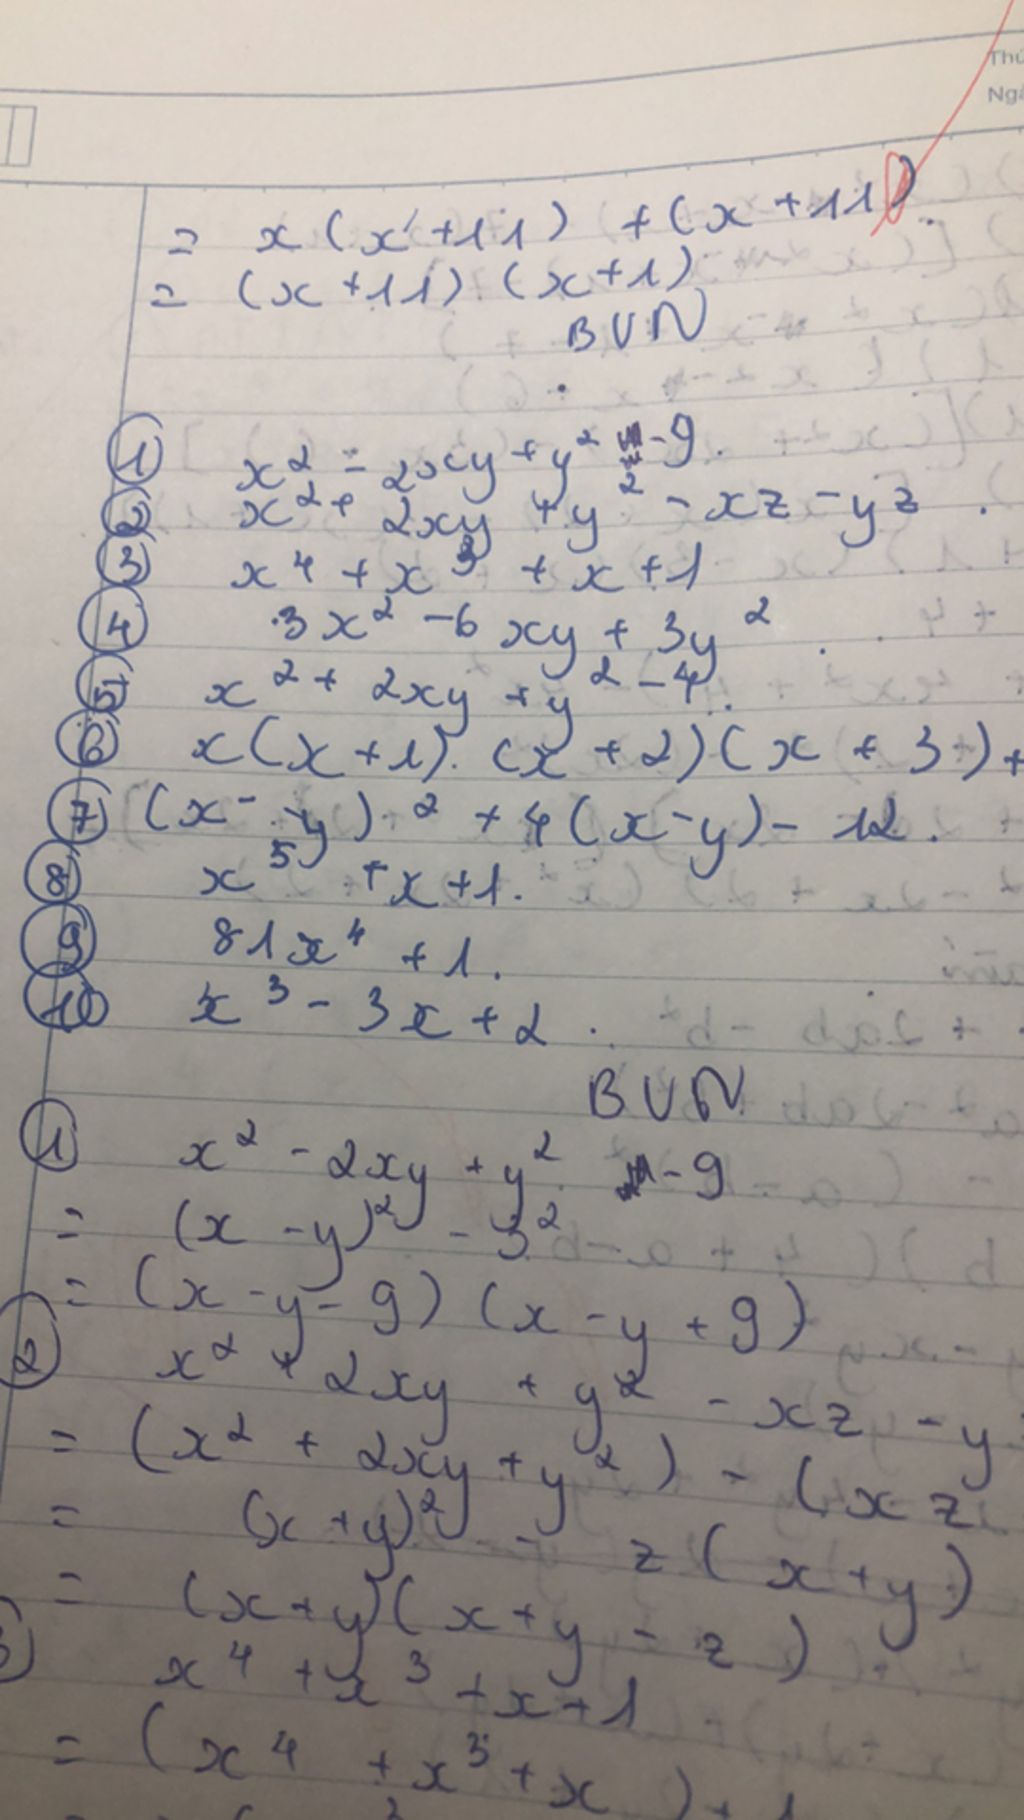 Thứ
Ngà
= x(x+11) + (x+11).
= (x+11) (x+1)
BVN
① x² - 2xy + y² - 9.
② x² + 2xy + y² - xz - yz.
③ x⁴ + x³ + x + 1
④ 3x² - 6xy + 3y².
⑤ x² + 2xy + y² - 4.
⑥ x(x+1).(x+2)(x+3)+
⑦ (x-y)² + 4(x-y) - 12.
⑧ x⁵ + x + 1.
⑨ 81x⁴ + 1.
⑩ x³ - 3x + 2.
BVN
① x² - 2xy + y² - 9
= (x - y)² - 3²
= (x - y - 9) (x - y + 9)
② x² + 2xy + y² - xz - y
= (x² + 2xy + y²) - (xz
= (x+y)² - z(x+y)
= (x+y)(x+y - z)
x⁴ + x³ + x + 1
= (x⁴ + x³ + x) + 1